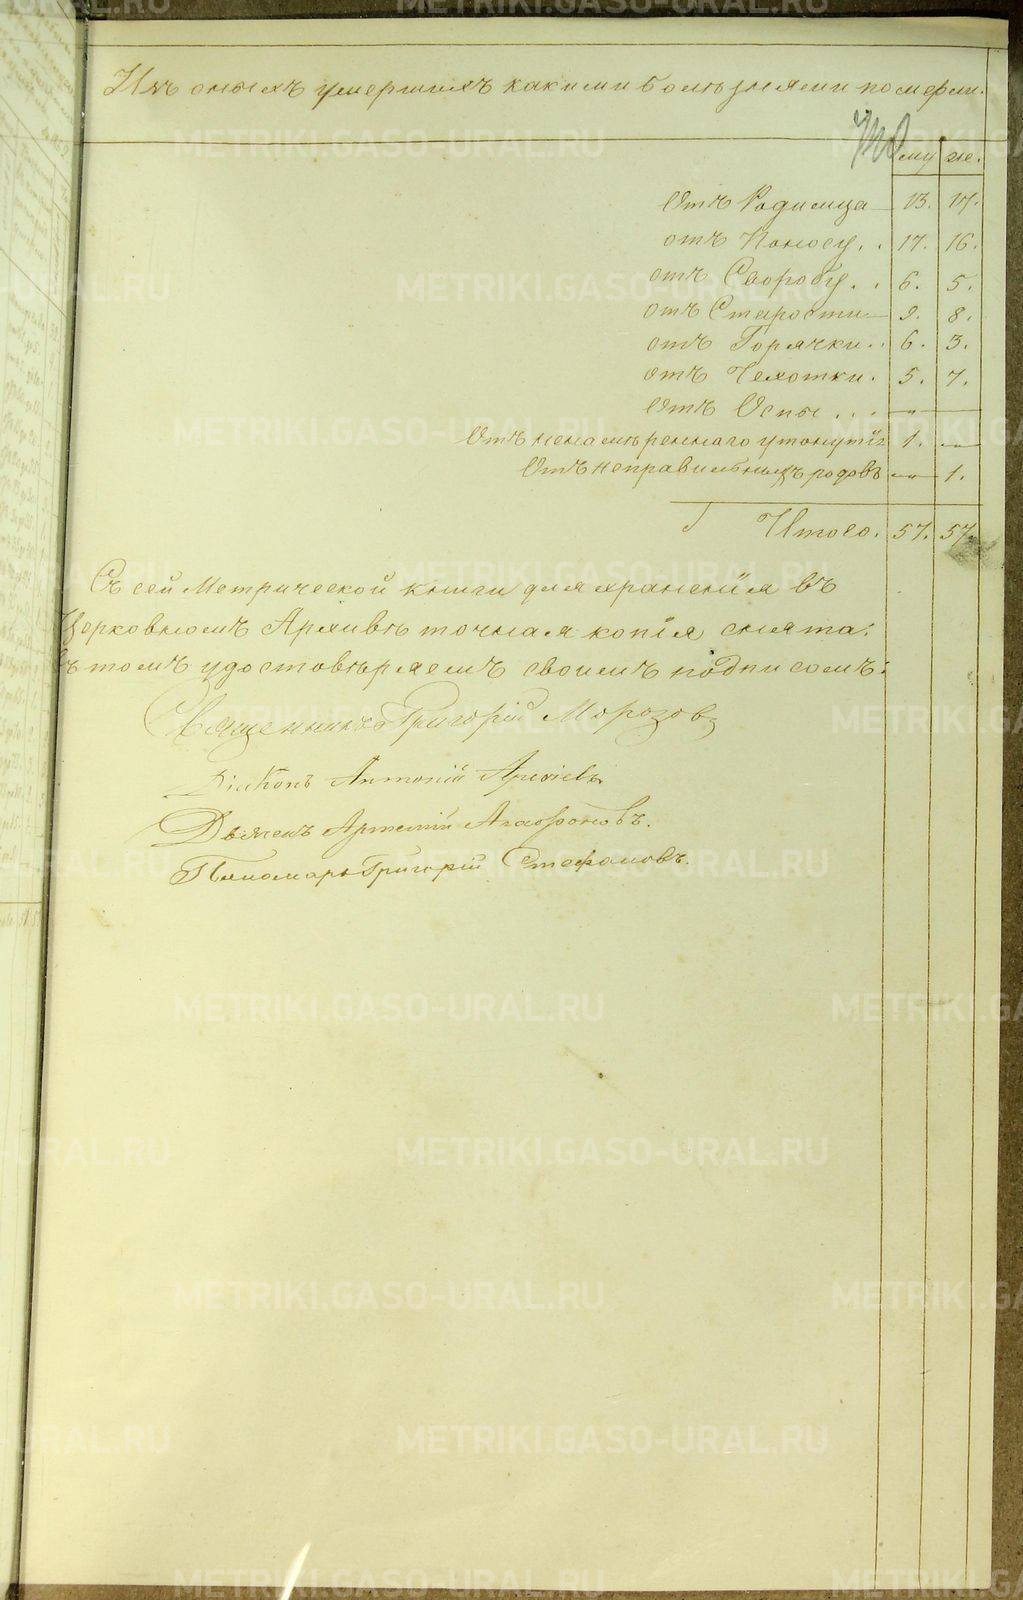 Изъ оныхъ умершихъ какими болѣзнями померли.
му же.
Отъ Родимца 13. 17.
отъ Поносу. . 17. 16.
отъ Скоробу. . 6. 5.
отъ Старости 9. 8.
отъ Горячки. . 6. 3.
отъ Чехотки. 5. 7.
Отъ Оспы . . . „
Отъ ненамѣреннаго утонутія 1. „
Отъ неправильныхъ родовъ „ 1.
Итого. 57. 57.
Съ сей Метрической книги для храненія въ
Церковномъ Архивѣ точная копія снята:
въ томъ удостовѣряемъ своимъ подписомъ:
Священникъ Григорій Морозовъ
Діаконъ Антоній
Дьячекъ Артемій Агафоновъ.
Пономарь Григорій Стефановъ.
METRIKI.GASO-URAL.RU